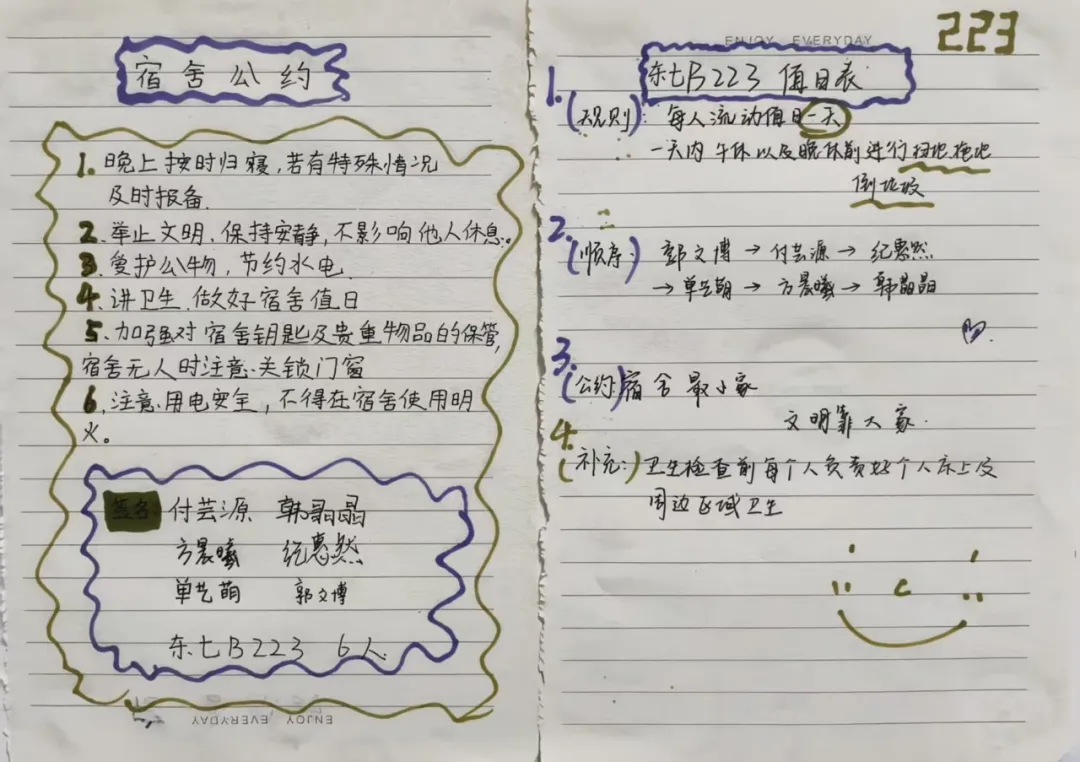 宿舍公约
1.晚上按时归寝,若有特殊情况
及时报备.
2.举止文明,保持安静,不影响他人休息。
3.爱护公物,节约水电.
4.讲卫生.做好宿舍值日
5.加强对宿舍钥匙及贵重物品的保管,
宿舍无人时注意关锁门窗
6.注意用电安全,不得在宿舍使用明
火。
签名 付芸源 韩晶晶
方晨曦 纪惠然
单艺萌 郭文博
东七B223 6人
ENJOY EVERYDAY
ENJOY EVERYDAY
223
东七B223 值日表
1.(规则): 每人流动值日一天
一天内午休以及晚休前进行扫地拖地
倒垃圾
2.(顺序:) 郭文博→付芸源→纪惠然
→单艺萌→方晨曦→韩晶晶
3.(公约)宿舍最小家
文明靠大家.
4.(补充:)卫生检查前每个人负责好个人床上及
周边区域卫生